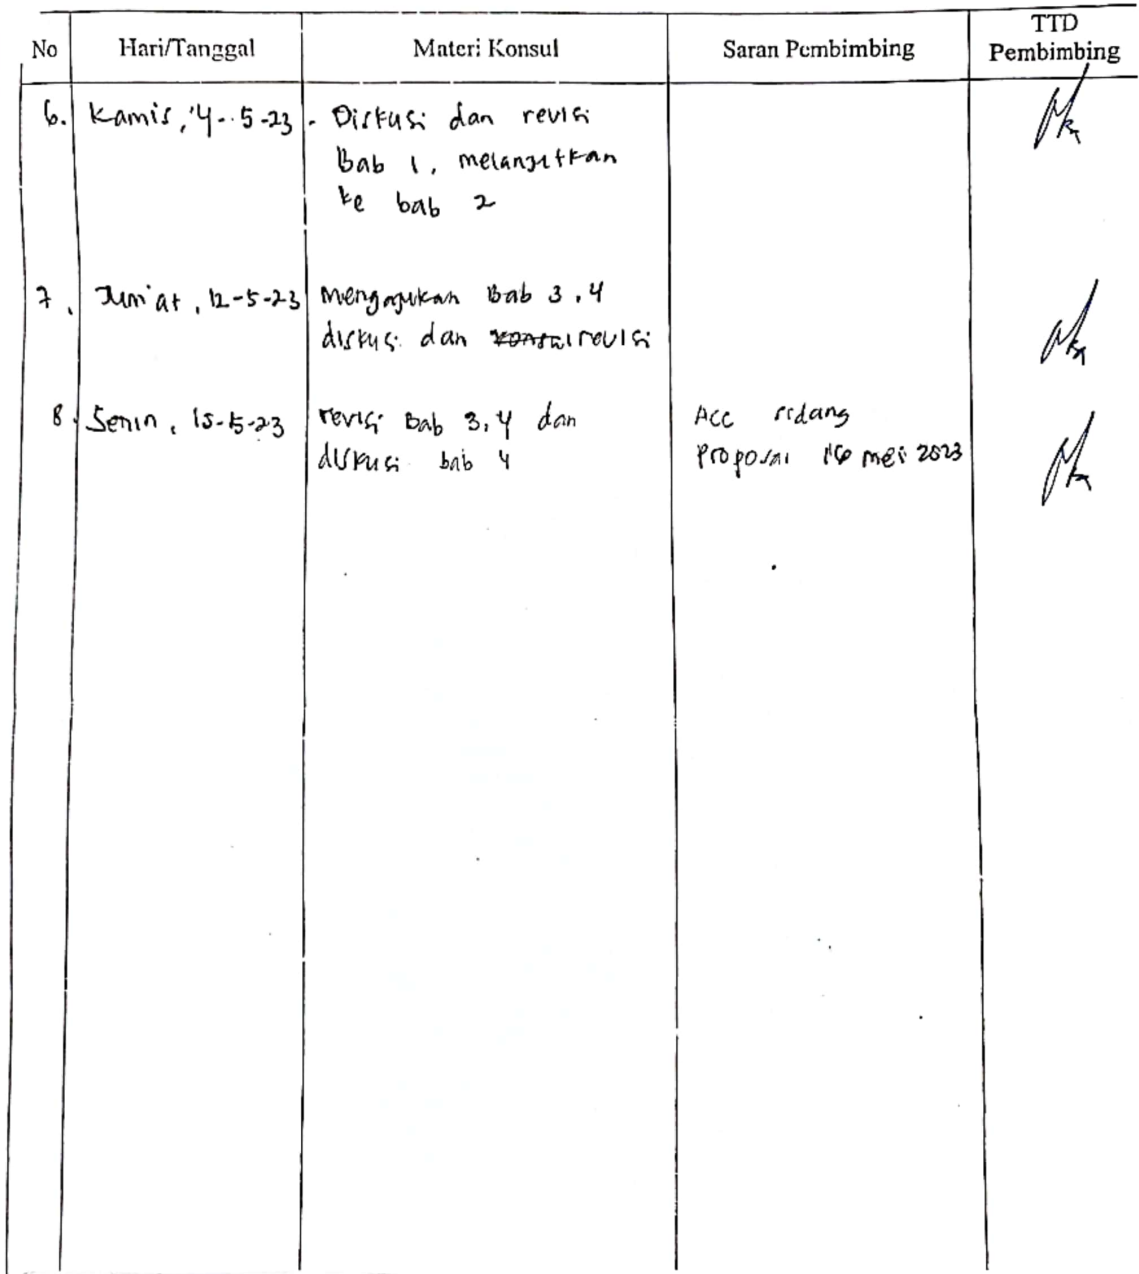 No Hari/Tanggal Materi Konsul Saran Pembimbing TTD Pembimbing
6. Kamis, 4-5-23 - Diskusi dan revisi
Bab 1, melanjutkan
ke bab 2
7. Jum'at, 12-5-23 Mengajukan Bab 3,4
diskusi dan revisi
8. Senin, 15-5-23 revisi Bab 3,4 dan Acc sidang
diskusi bab 4 Proposal 16 mei 2023